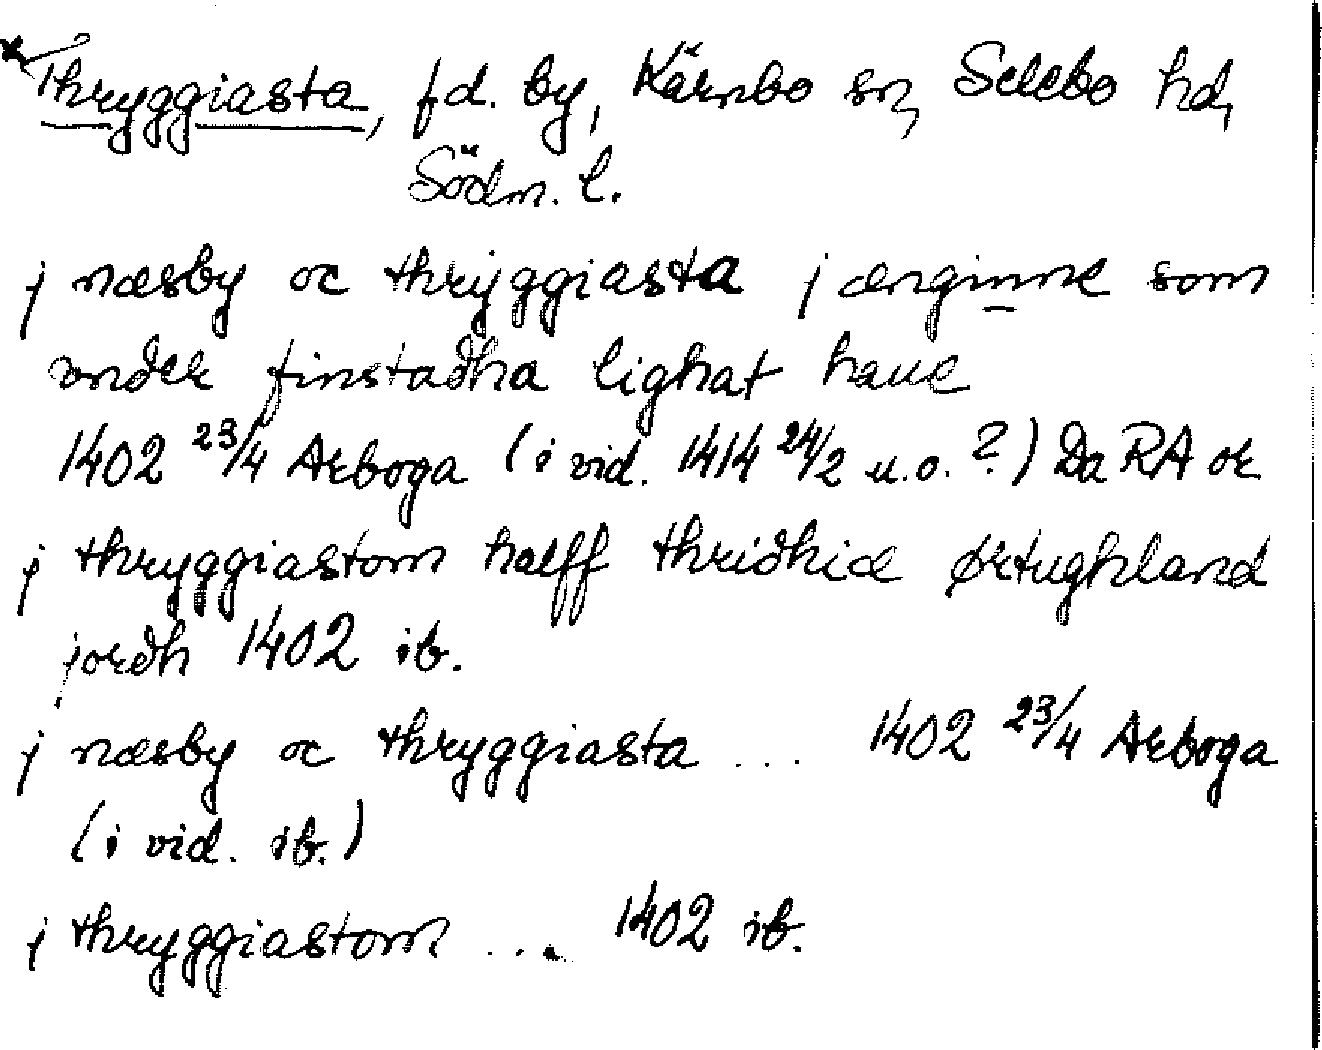 *Thryggiasta, fd. by, Kärnbo sn, Selebo hd,
Södm. l.
j næsby oc thryggiasta j ænginne som
vnder finstadha lighat haue
1402 23/4 Arboga (i vid. 1414 24/2 u.o.?) Da RA or
j thryggiastom halff thridhiæ ørtughland
jordh 1402 ib.
j næsby oc thryggiasta ... 1402 23/4 Arboga
(i vid. ib.)
j thryggiastom ... 1402 ib.